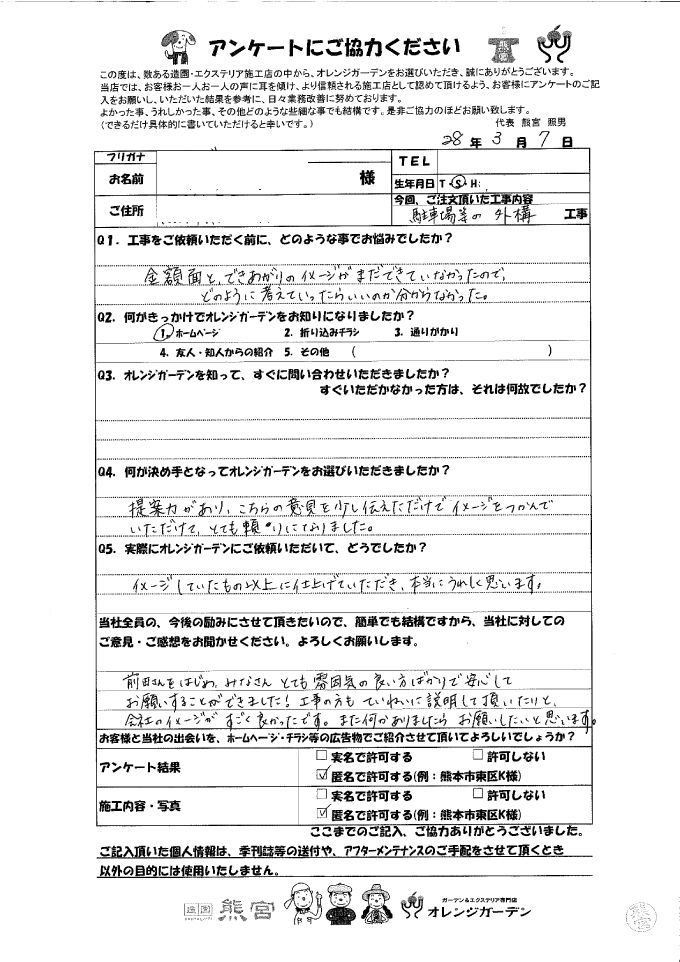 アンケートにご協力ください
この度は、数ある造園・エクステリア施工店の中から、オレンジガーデンをお選びいただき、誠にありがとうございます。
当店では、お客様お一人お一人の声に耳を傾け、より信頼される施工店として認めて頂けるよう、お客様にアンケートのご記
入をお願いし、いただいた結果を参考に、日々業務改善に努めております。
よかった事、うれしかった事、その他どのような些細な事でも結構です。是非ご協力のほどお願い致します。
(できるだけ具体的に書いていただけると幸いです。) 代表 熊宮 照男
28 年 3 月 7 日
フリガナ
お名前 様
TEL
生年月日 T・S・H:
ご住所
今回、ご注文頂いた工事内容
駐車場等の 外構 工事
Q1. 工事をご依頼いただく前に、どのような事でお悩みでしたか?
金額面と、できあがりのイメージがまだできていなかったので、
どのように考えていったらいいのか分からなかった。
Q2. 何がきっかけでオレンジガーデンをお知りになりましたか?
1. ホームページ 2. 折り込みチラシ 3. 通りがかり
4. 友人・知人からの紹介 5. その他 ( )
Q3. オレンジガーデンを知って、すぐに問い合わせいただきましたか?
すぐいただかなかった方は、それは何故でしたか?
Q4. 何が決め手となってオレンジガーデンをお選びいただきましたか?
提案力があり、こちらの意見を少し伝えただけでイメージをつかんで
いただけて、とても頼りになりました。
Q5. 実際にオレンジガーデンにご依頼いただいて、どうでしたか?
イメージしていたもの以上に仕上げていただき、本当にうれしく思います。
当社全員の、今後の励みにさせて頂きたいので、簡単でも結構ですから、当社に対しての
ご意見・ご感想をお聞かせください。よろしくお願いします。
前田さんをはじめ、みなさん とても雰囲気の良い方ばかりで安心して
お願いすることができました! 工事の方も ていねいに説明して頂いたりと、
会社のイメージが すごく良かったです。また何かありましたら お願いしたいと思います。
お客様と当社の出会いを、ホームページ・チラシ等の広告物でご紹介させて頂いてよろしいでしょうか?
アンケート結果
□ 実名で許可する □ 許可しない
☑ 匿名で許可する(例:熊本市東区K様)
施工内容・写真
□ 実名で許可する □ 許可しない
☑ 匿名で許可する(例:熊本市東区K様)
ここまでのご記入、ご協力ありがとうございました。
ご記入頂いた個人情報は、季刊誌等の送付や、アフターメンテナンスのご手配をさせて頂くとき
以外の目的には使用いたしません。
造園 熊宮
ガーデン&エクステリア専門店
オレンジガーデン